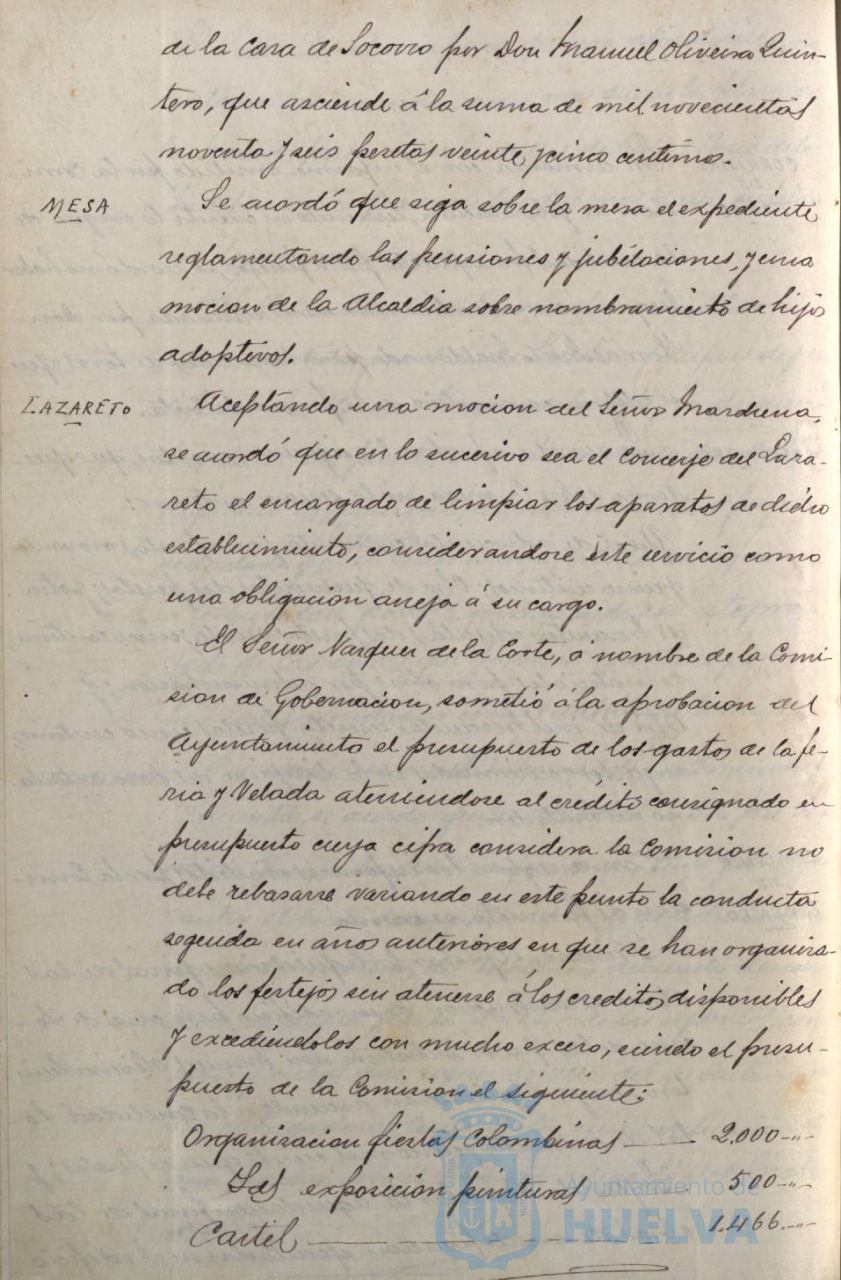 de la Casa de Socorro por Don Manuel Oliveira Quin-
tero, que asciende á la suma de mil novecientas
noventa y seis pesetas veinte y cinco centimos.
MESA
Se acordó que siga sobre la mesa el expediente
reglamentando las pensiones y jubilaciones, y una
mocion de la Alcaldia sobre nombramiento de hijos
adoptivos.
LAZARETO
Aceptando una mocion del Señor Marchena,
se acordó que en lo sucesivo sea el Conserje del Laza-
reto el encargado de limpiar los aparatos de dicho
establecimiento, considerandose este servicio como
una obligacion aneja á su cargo.
El Señor Vazquez de la Corte, á nombre de la Comi-
sion de Gobernacion, sometió á la aprobacion del
Ayuntamiento el presupuesto de los gastos de la fe-
ria y Velada ateniendose al crédito consignado en
presupuesto cuya cifra considera la Comision no
debe rebasarse variando en este punto la conducta
seguida en años anteriores en que se han organiza-
do los festejos sin atenerse á los creditos disponibles
y excediéndolos con mucho exceso, siendo el presu-
puesto de la Comision el siguiente:
Organizacion fiestas Colombinas 2.000-"-
exposición pinturas 500-"-
Cartel 1.466.-"-
Ayuntamiento de
HUELVA